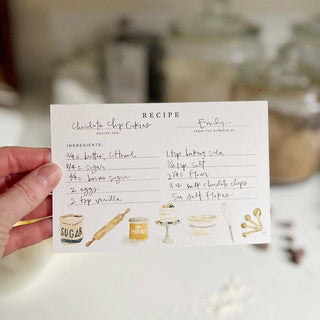 RECIPE
Chocolate Chip Cookies
Emily
RECIPE FOR:
FROM THE KITCHEN OF:
INGREDIENTS:
3/4 c. butter, softened
3/4 c. sugar
3/4 c. brown sugar
2 eggs
2 tsp vanilla
1 tsp baking soda
1/2 tsp salt
2 1/4 c flour
milk chocolate chips
Sea salt flakes
SUGAR
HONEY